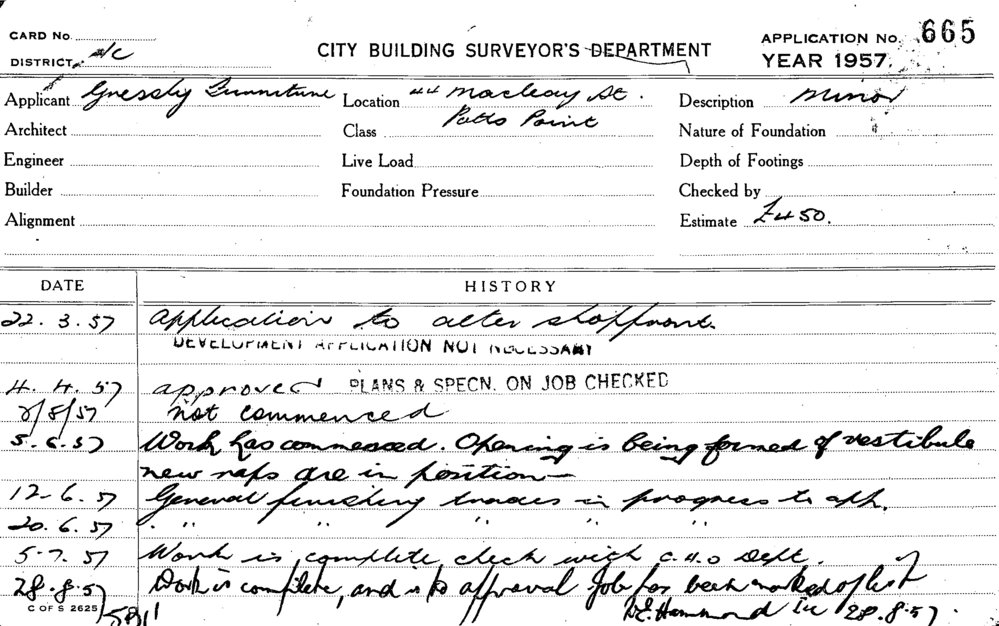 CARD No.
CITY BUILDING SURVEYOR'S DEPARTMENT
APPLICATION No. 665
DISTRICT A/C
YEAR 1957.
Applicant Furniture Location 44 Macleay St. Description Minor
Potts Point
Architect Class Nature of Foundation
Engineer Live Load Depth of Footings
Builder Foundation Pressure Checked by
Alignment Estimate £450.
DATE HISTORY
22. 3. 57 Application to alter shopfront.
DEVELOPMENT APPLICATION NOT NECESSARY
4. 4. 57 approved PLANS & SPECN. ON JOB CHECKED
/8/57 not commenced
5. 6. 57 Work has commenced. Opening is being formed of vestibule
new are in position
12. 6. 57 General finishing trades in progress to
20. 6. 57 " " " " "
5. 7. 57 Work is complete check with Dept.
28. 8. 57 Work is complete, and is to approval Job has been marked of list
C OF S 2625/5811 Hammond 28. 8. 57.